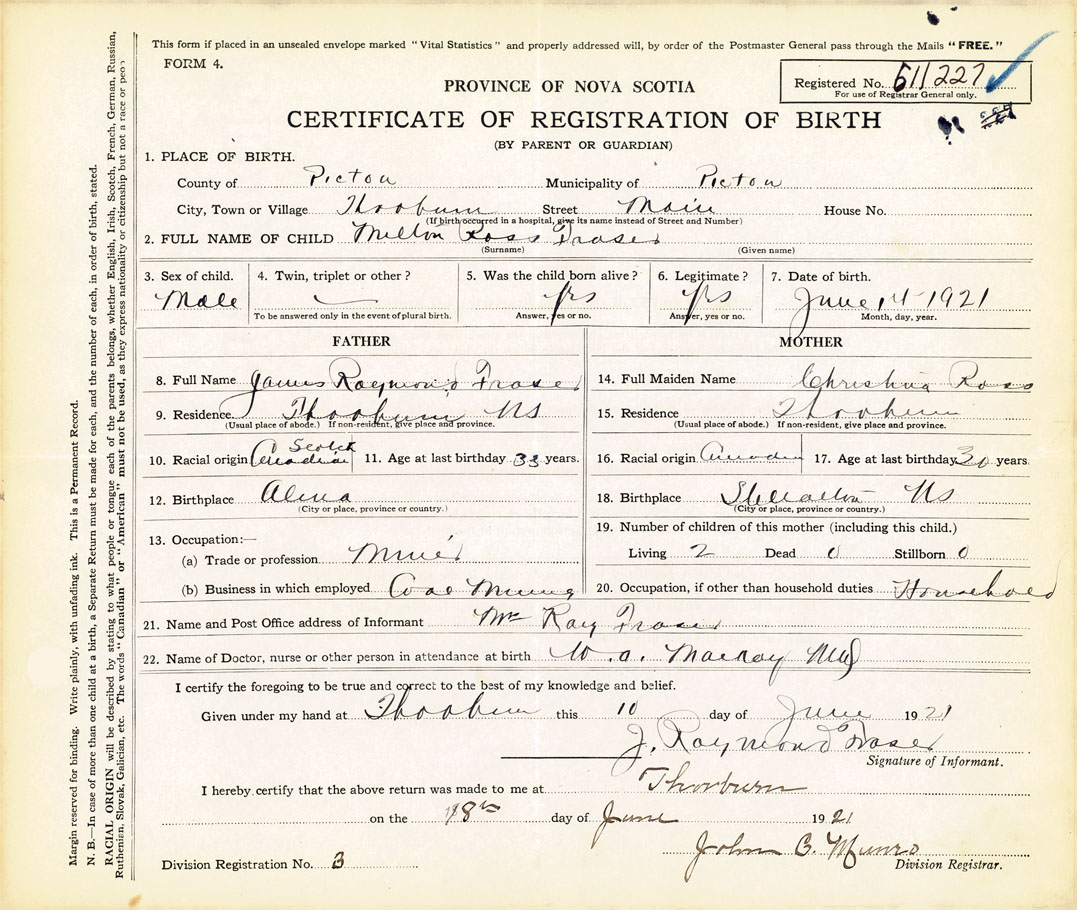 This form if placed in an unsealed envelope marked "Vital Statistics" and properly addressed will, by order of the Postmaster General pass through the Mails "FREE."
FORM 4.
Registered No. 611227
For use of Registrar General only.
PROVINCE OF NOVA SCOTIA
CERTIFICATE OF REGISTRATION OF BIRTH
(BY PARENT OR GUARDIAN)
1. PLACE OF BIRTH.
County of Pictou Municipality of Pictou
City, Town or Village Thorburn Street Main House No.
(If birth occurred in a hospital, give its name instead of Street and Number)
2. FULL NAME OF CHILD Milton Ross Fraser
(Surname) (Given name)
3. Sex of child. 4. Twin, triplet or other? 5. Was the child born alive? 6. Legitimate? 7. Date of birth.
Male yes yes June 14 1921
To be answered only in the event of plural birth. Answer, yes or no. Answer, yes or no. Month, day, year.
FATHER
8. Full Name James Raymond Fraser
9. Residence Thorburn NS
(Usual place of abode.) If non-resident, give place and province.
10. Racial origin Scotch Canadian 11. Age at last birthday 33 years.
12. Birthplace Alma
(City or place, province or country.)
13. Occupation:—
(a) Trade or profession Miner
(b) Business in which employed Coal Mining
MOTHER
14. Full Maiden Name Christina Ross
15. Residence Thorburn
(Usual place of abode.) If non-resident, give place and province.
16. Racial origin Canadian 17. Age at last birthday 30 years
18. Birthplace Stellarton NS
(City or place, province or country.)
19. Number of children of this mother (including this child.)
Living 2 Dead 0 Stillborn 0
20. Occupation, if other than household duties Household
21. Name and Post Office address of Informant Mr Ray Fraser
22. Name of Doctor, nurse or other person in attendance at birth W. A. MacKay MD
I certify the foregoing to be true and correct to the best of my knowledge and belief.
Given under my hand at Thorburn this 10 day of June 1921
J. Raymond Fraser
Signature of Informant.
I hereby certify that the above return was made to me at Thorburn
on the 18th day of June 1921
John B. Munro
Division Registration No. 3 Division Registrar.
Margin reserved for binding. Write plainly, with unfading ink. This is a Permanent Record.
N. B.—In case of more than one child at a birth, a Separate Return must be made for each, and the number of each, in order of birth, stated.
RACIAL ORIGIN will be described by stating to what people or tongue each of the parents belongs, whether English, Irish, Scotch, French, German, Russian,
Ruthenian, Slovak, Galician, etc. The words "Canadian" or "American" must not be used, as they express nationality or citizenship but not a race or